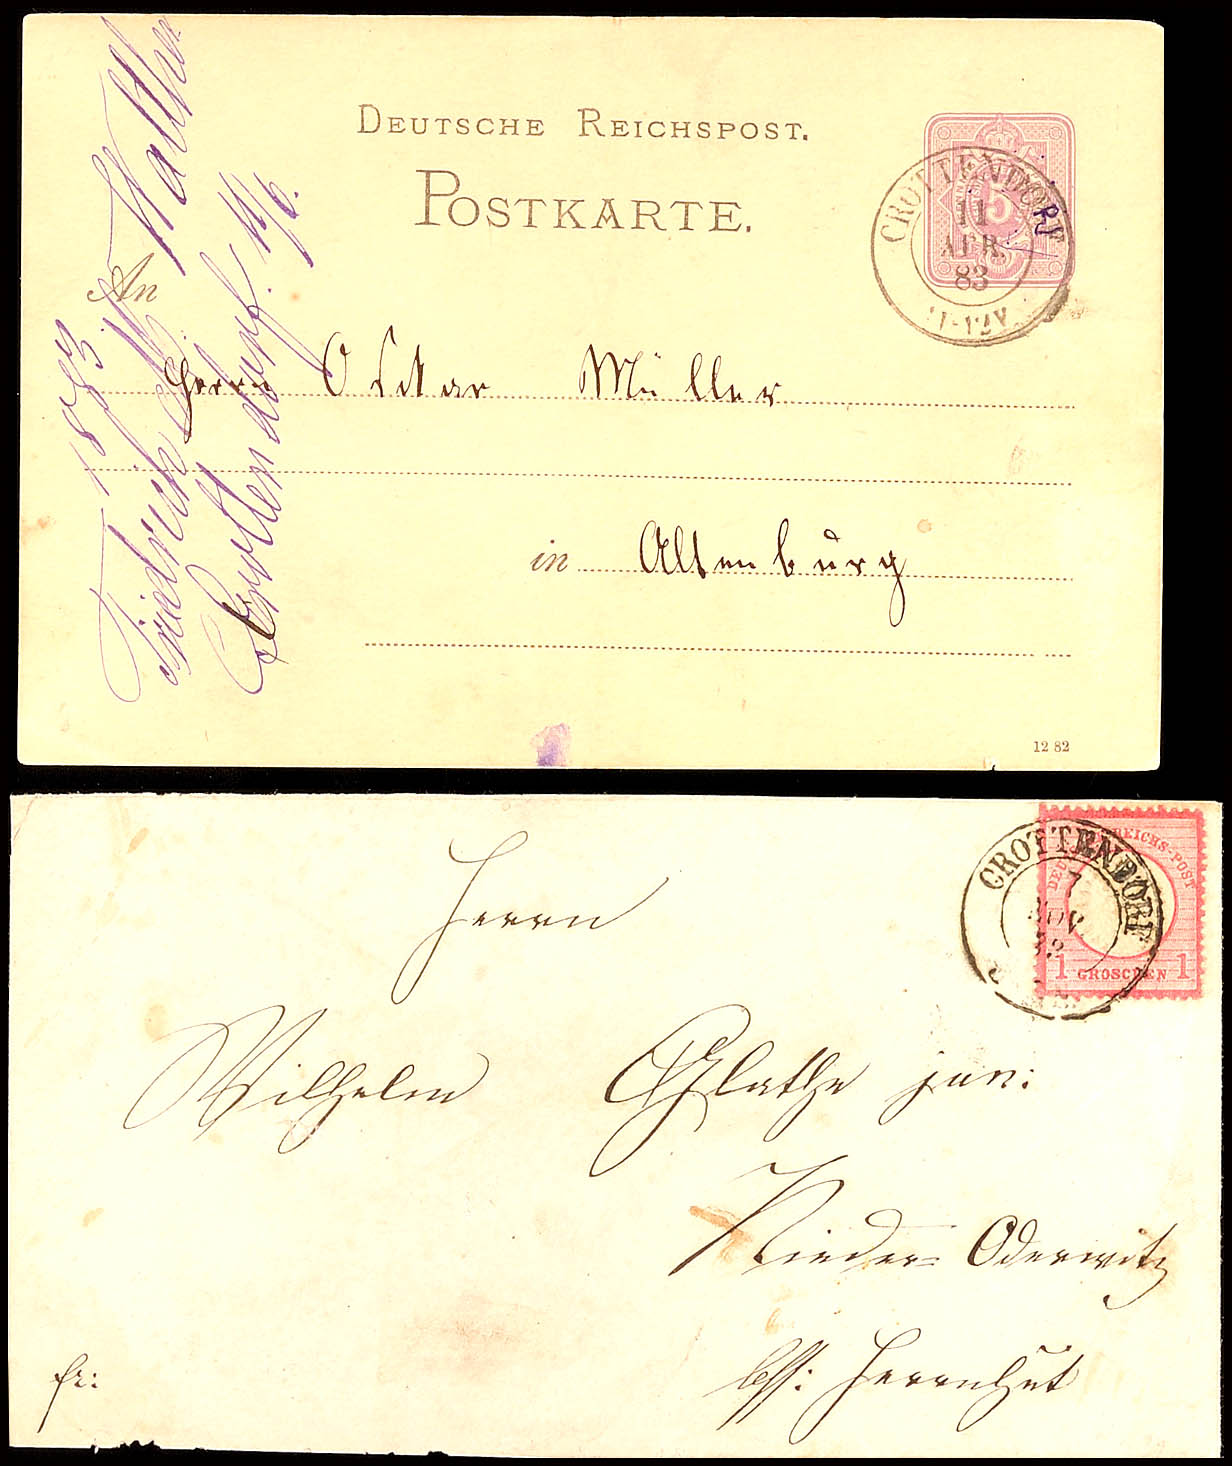 DEUTSCHE REICHSPOST.
POSTKARTE.
CROTTENDORF
11
APR.
83
11-12V
5
An
Herrn Oskar Müller
in Altenburg
12 82
1883.
Friedrich
Walther
Crottendorf. 11/6.
CROTTENDORF
7
NOV.
DEUTSCHE REICHS-POST
1 GROSCHEN 1
Herrn
Wilhelm Glathe jun:
Nieder-Oderwitz
bss: Herrnhut
fr: